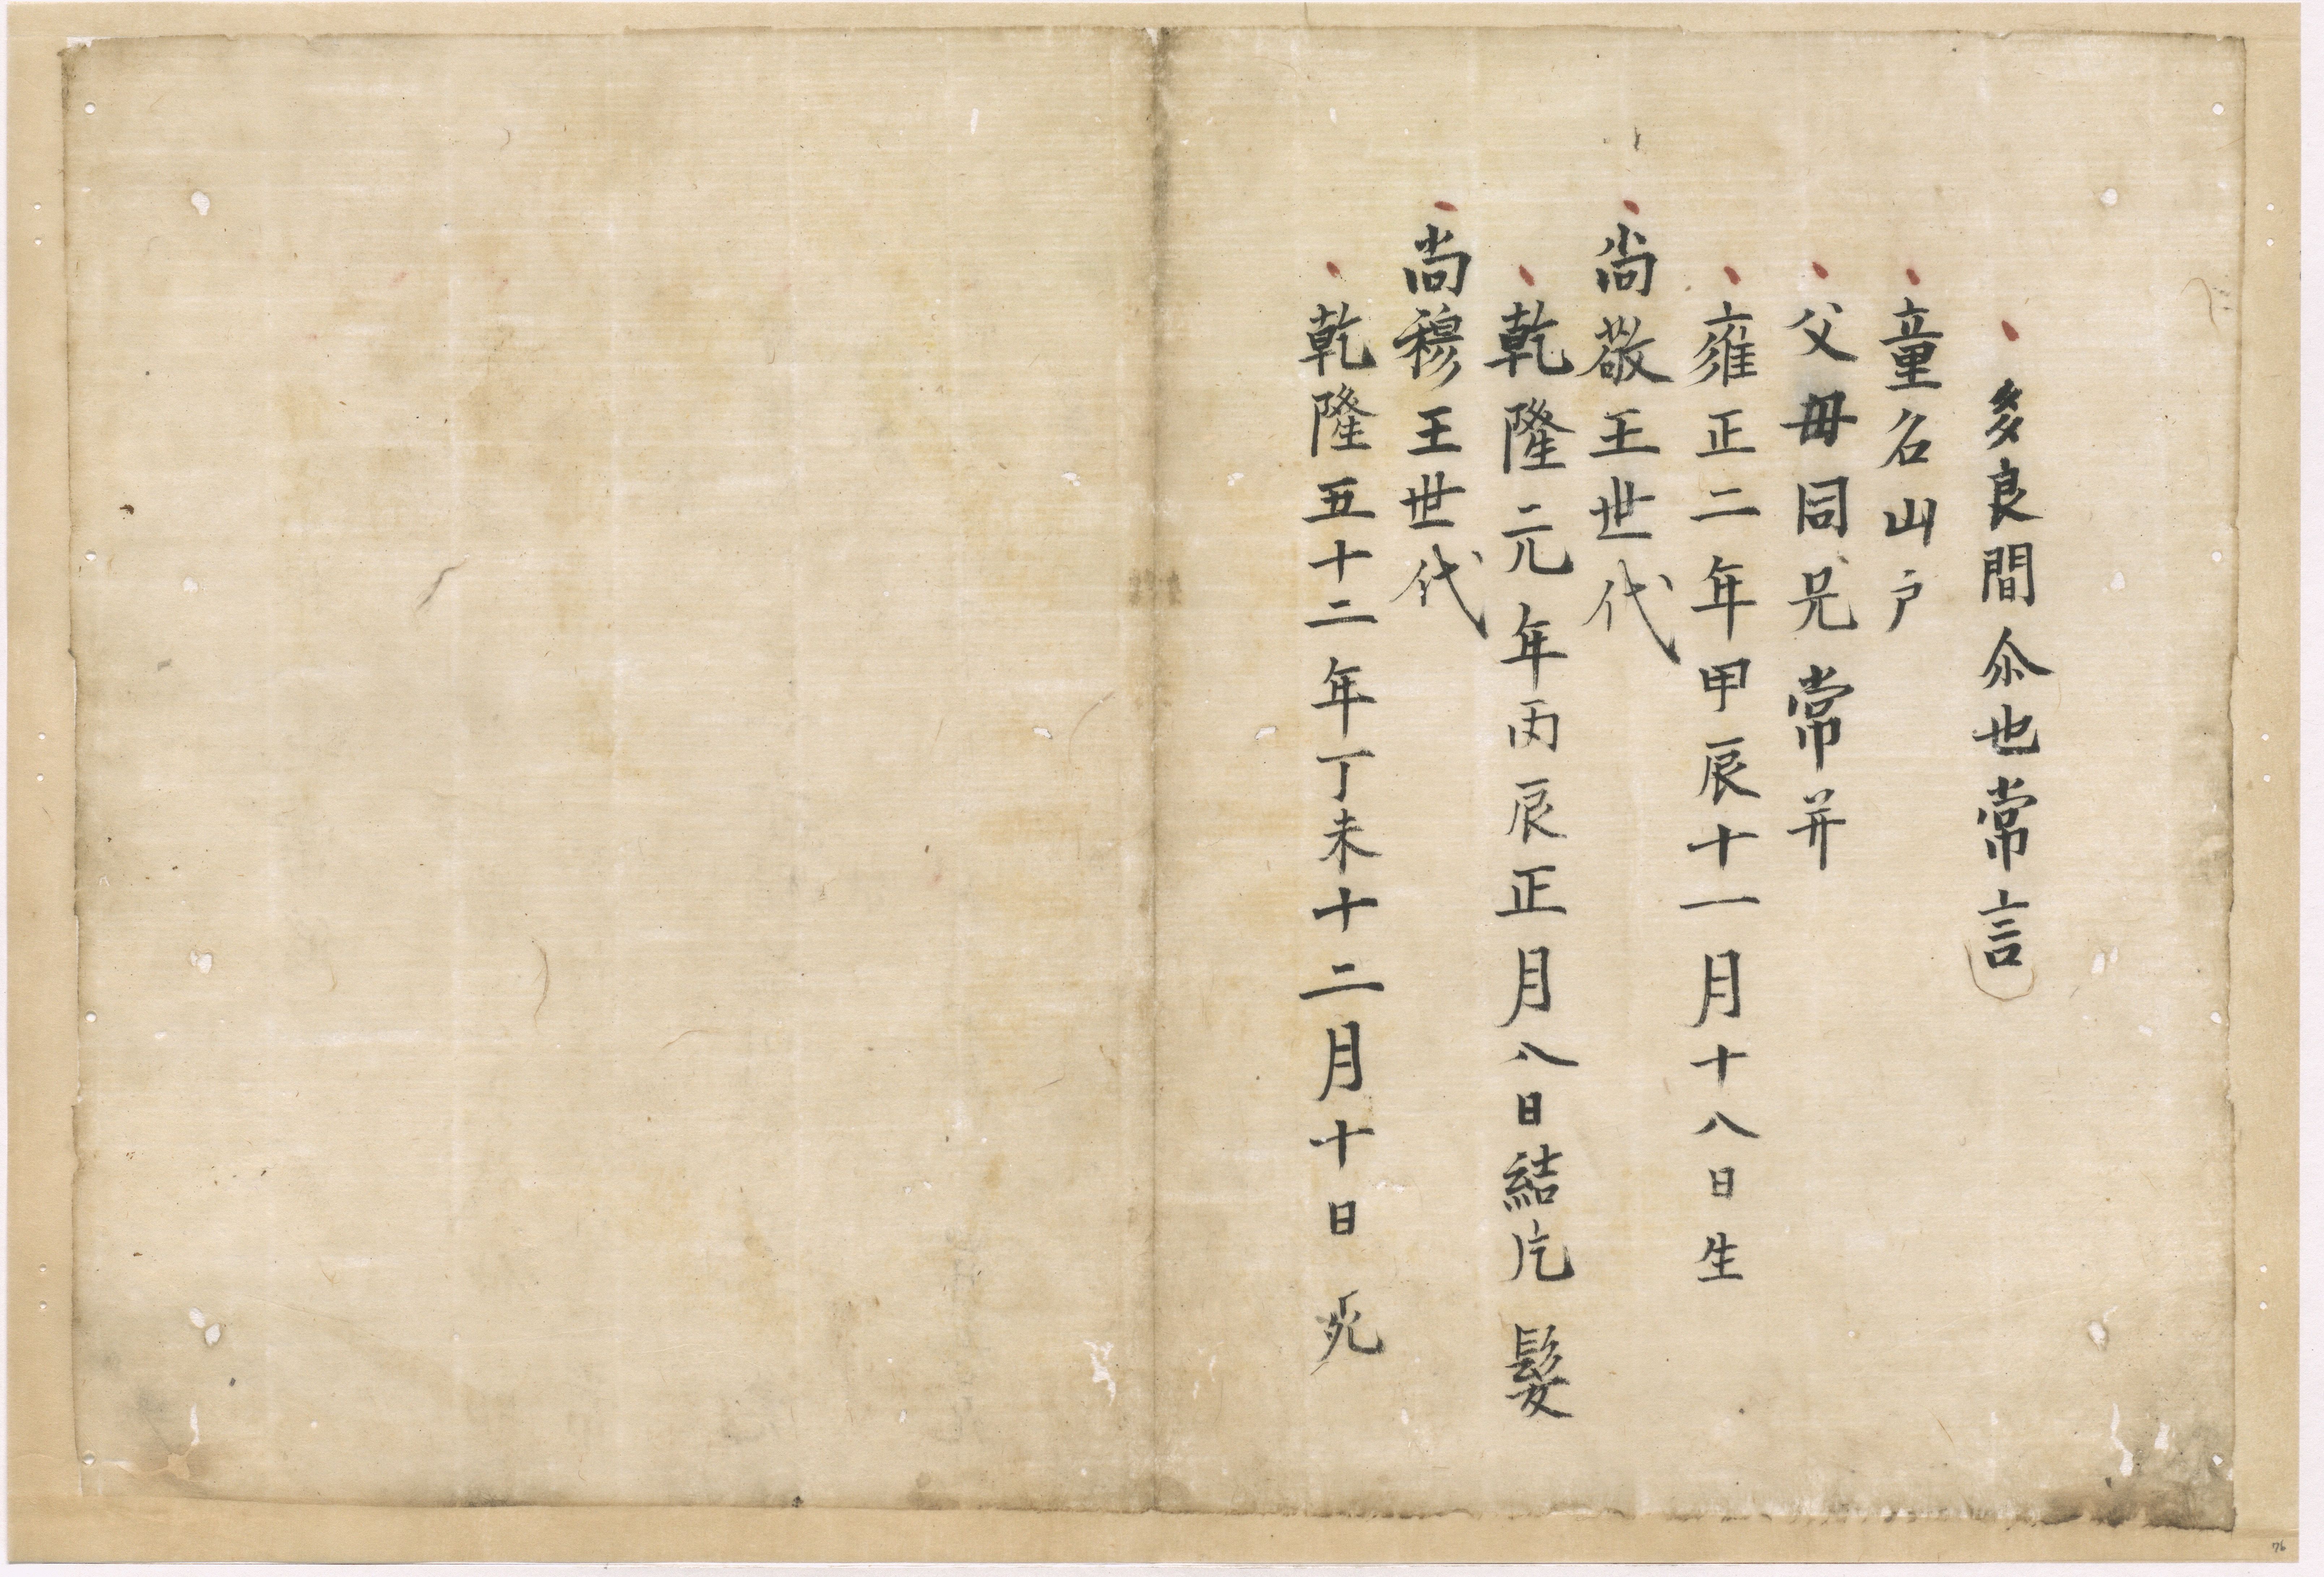 多良間尒也常言
童名山戶
父毋同兄常并
雍正二年甲辰十一月十八日生
尚敬王世代
乾隆元年丙辰正月八日結片髮
尚穆王世代
乾隆五十二年丁未十二月十日死
76